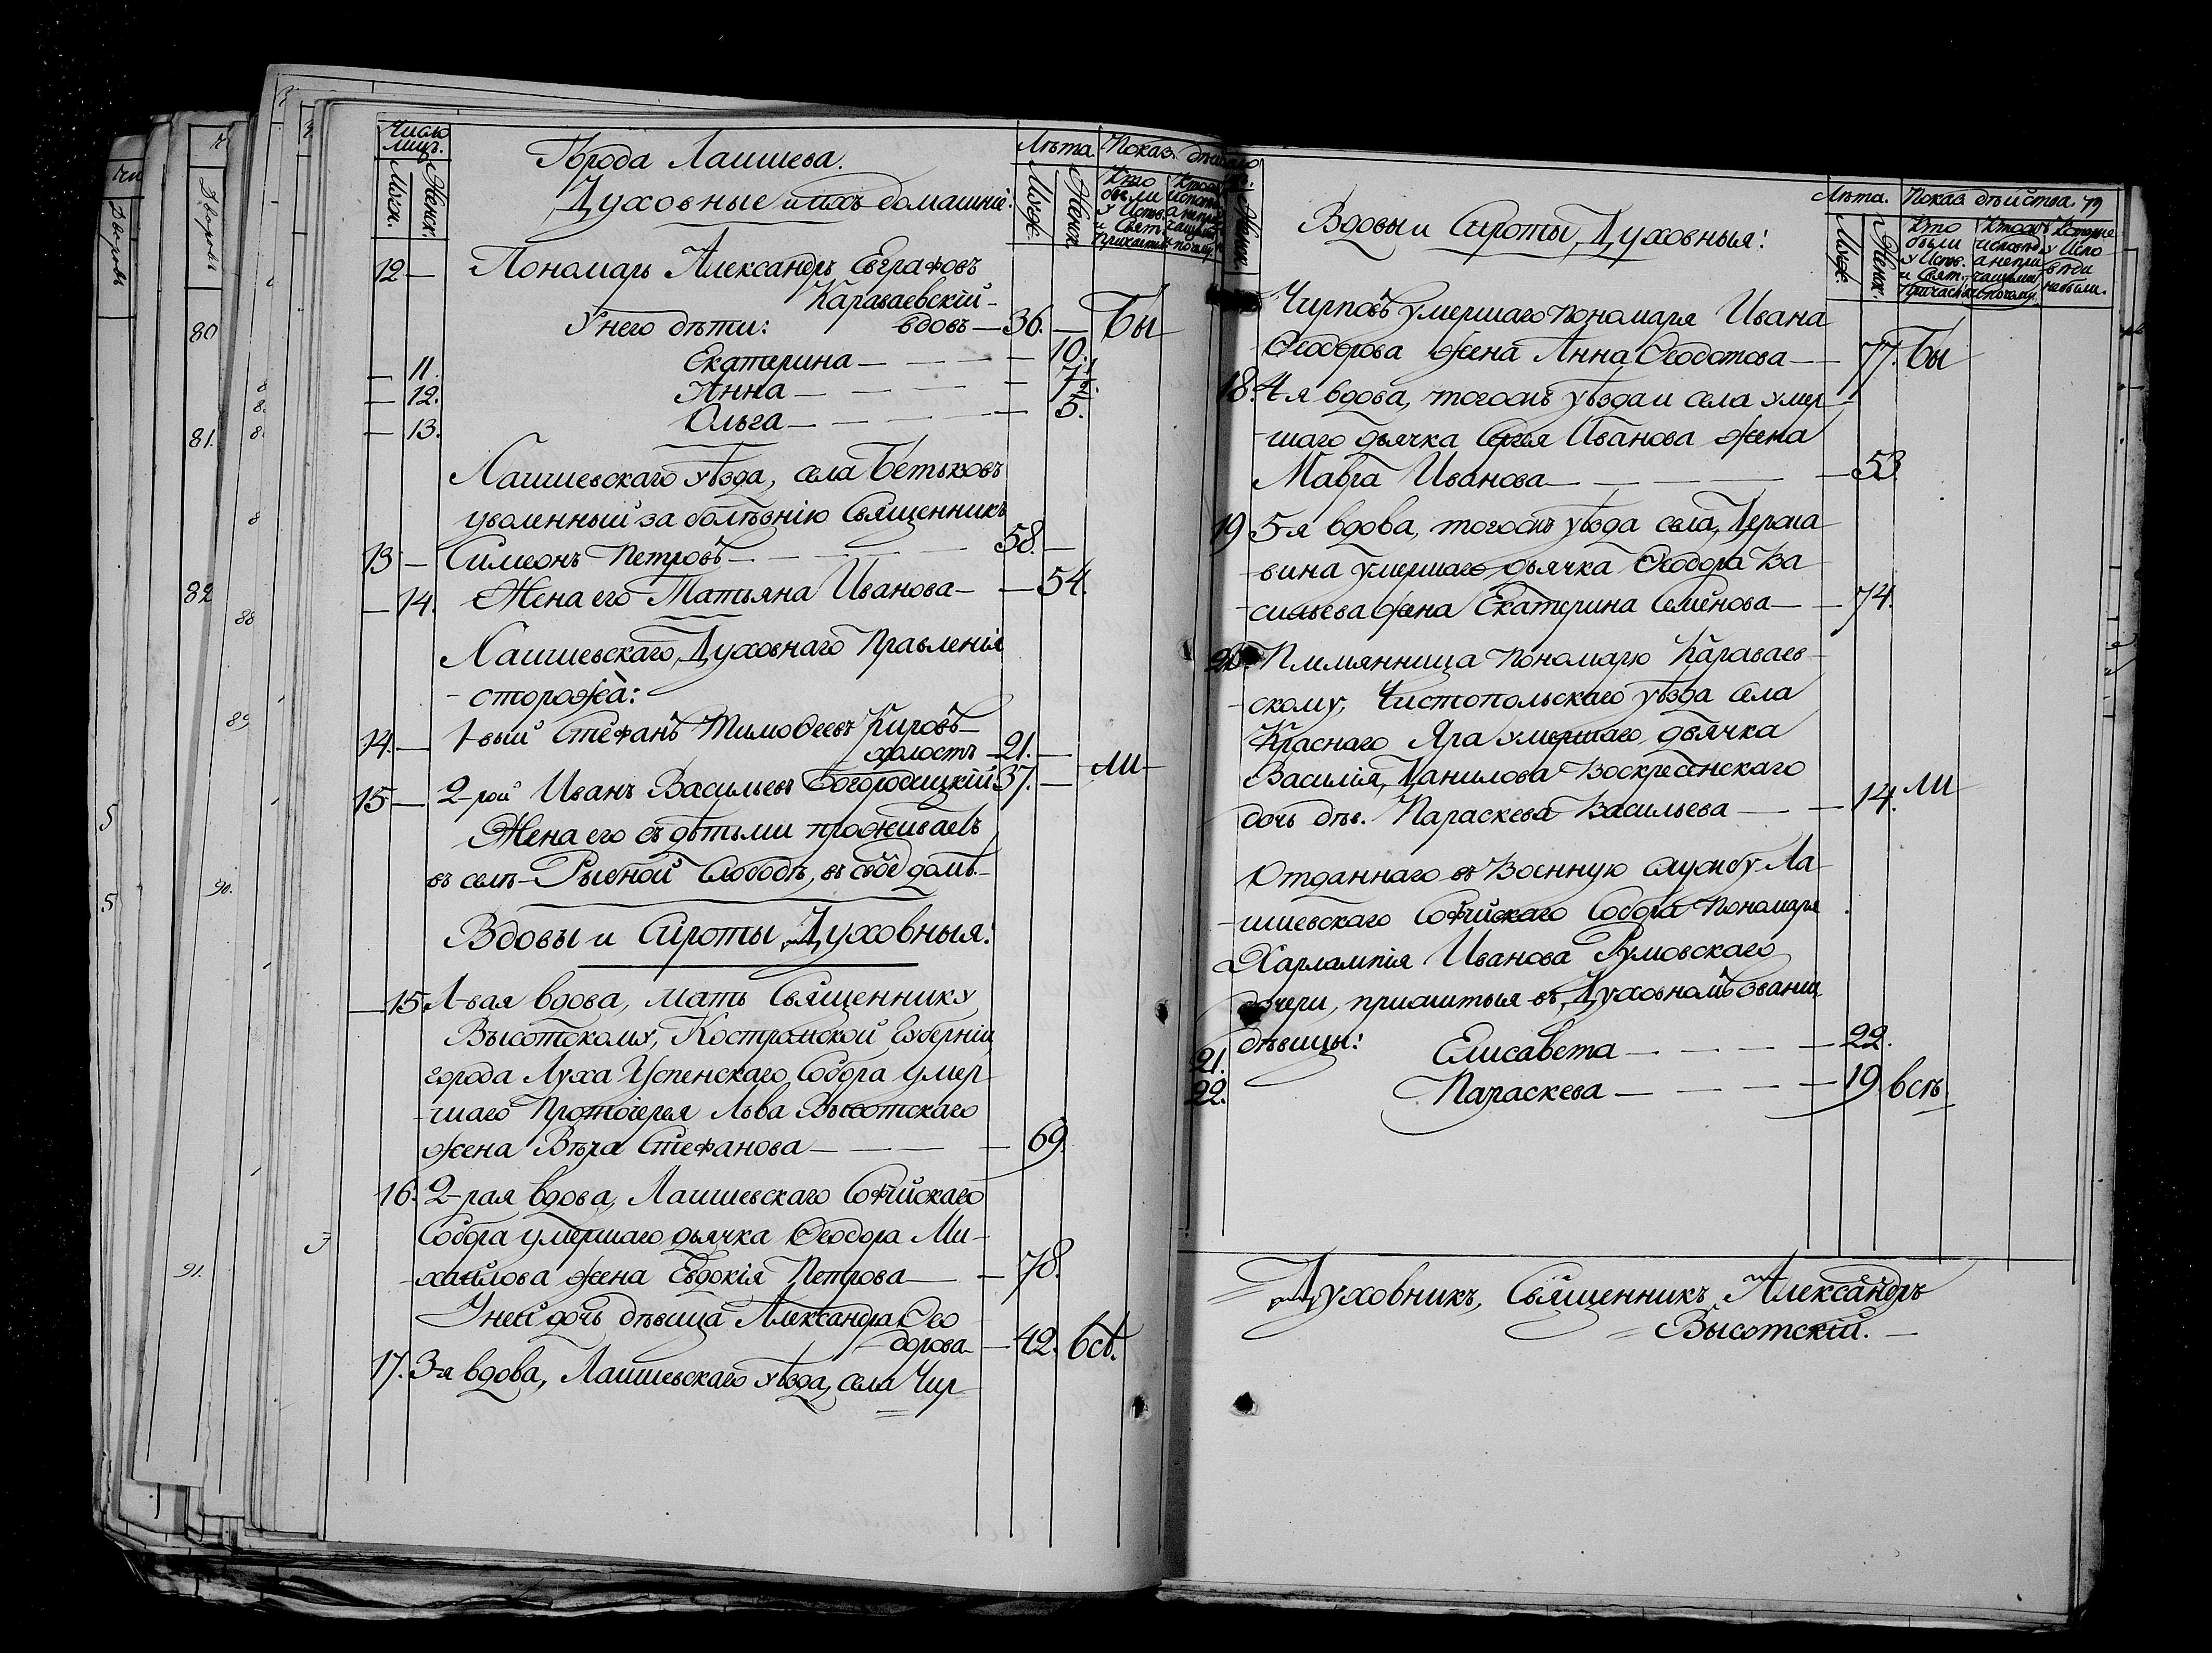 Число лицъ.
Мужск.
Женск.
Города Лаишева.
Духовные и ихъ домашніе:
Лѣта
Мужс.
Женск.
Показ. дѣйств
Кто были у Испов. и Свят. Причастія
12 — Пономарь Александръ Евграфовъ
Караваевскій —
У него дѣти: вдовъ — 36. — Бы
— 11. Екатерина — — — — 10.
— 12. Анна — — — — 7½.
— 13. Ольга — — — — 5.
Лаишевскаго уѣзда, села Бетьковъ
уволенный за болѣзнію Священникъ
13 — Симеонъ Петровъ — — — 58. —
— 14. Жена его Татьяна Иванова — — 54.
Лаишевскаго Духовнаго Правленія
- сторожа:
14. — 1-вый Стефанъ Тимоѳеевъ Кировъ —
холостъ — 21. —
15 — 2-рой Иванъ Васильевъ Богородицкій 37. — ли —
Жена его съ дѣтьми проживаетъ
въ селѣ — Рыбной Слободѣ, въ своё домѣ. —
Вдовы и Сироты Духовныя:
— 15 1-вая вдова, мать Священнику
Высотскому, Костромской Губерніи
города Луха Успенскаго Собора умер
- шаго Протоіерея Льва Высотскаго
жена Вѣра Стефанова — — — — 69.
16. 2-рая вдова, Лаишевскаго Софійскаго
Собора умершаго дьячка Ѳеодора Ми-
- хайлова жена Евдокія Петрова — — 78.
У неё дочь дѣвица Александра Ѳео
- дорова — 42. всѣ.
17. 3-я вдова, Лаишевскаго уѣзда, села Чир
Женск.
Вдовы и Сироты Духовныя:
Лѣта.
Мужс.
Женск.
Показ. дѣйства. 79
Кто были у Испов. и Свят. Причастія
Которые у Исповѣди небыли.
Чирповъ умершаго пономаря Ивана
Ѳеодорова жена Анна Ѳеодотова — 77. Бы
18. 4-я вдова, тогожъ уѣзда и села умер —
- шаго дьячка Сергея Иванова жена
Мавра Иванова — — — — — 53.
19 5-я вдова, тогожъ уѣзда села Держа
- вина умершаго дьячка Ѳеодора Ва
- сильева жена Екатерина Семёнова — — 74.
20. Племянница пономарю Караваев-
- скому, Чистопольскаго уѣзда села
Краснаго Яра умершаго дьячка
Василія Данилова Воскресенскаго
дочь дѣв. Параскева Васильева — — 14. ли
Отданнаго въ Военную службу Ла-
- ишевскаго Софійскаго Собора пономаря
Харлампія Иванова Румовскаго
дочери, прижитыя въ Духовномъ званіи
дѣвицы:
21. Елисавета — — — — — 22.
22. Параскева — — — — — 19 всѣ.
Духовникъ, Священникъ Александръ
Высотскій. —
80
81.
82
88
89
90.
91.